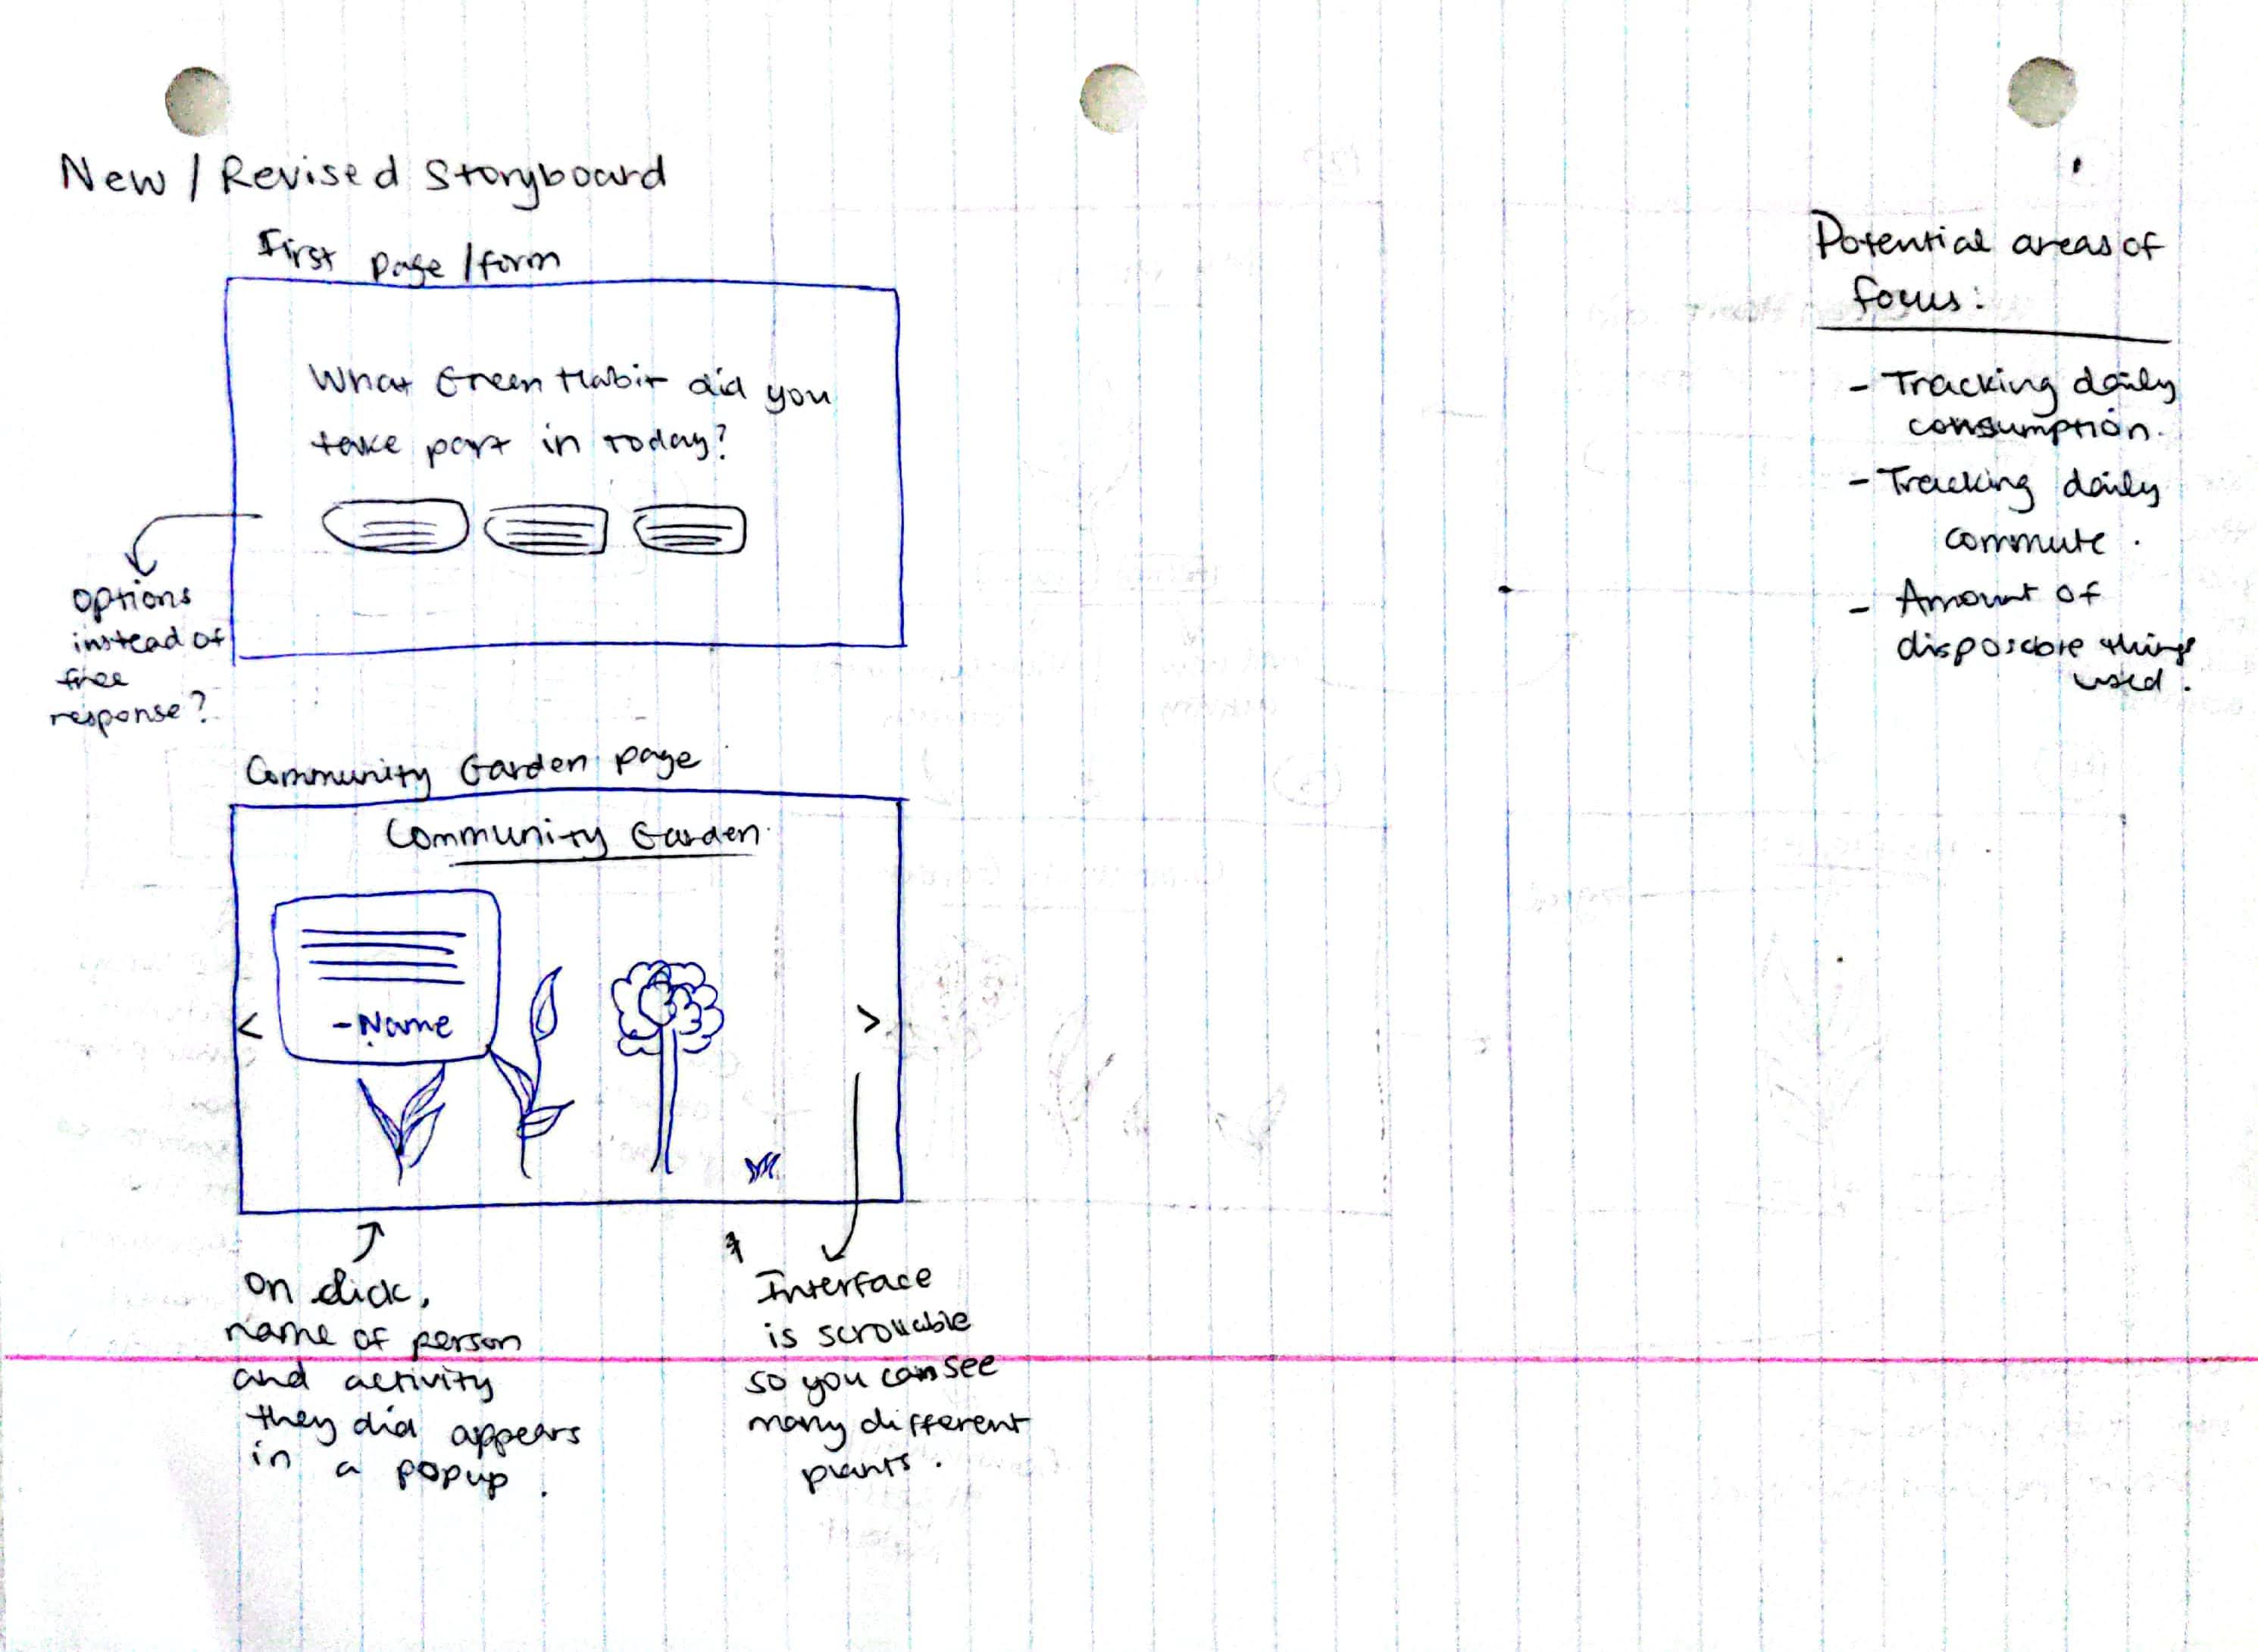 New / Revised Storyboard
First page / form
What Green Habit did you
take part in today?
options
instead of
free
response?
Community Garden page
Community Garden
- Name
<
>
On click,
name of person
and activity
they did appears
in a popup.
Interface
is scrollable
so you can see
many different
plants.
Potential areas of
focus:
- Tracking daily
consumption.
- Tracking daily
commute.
- Amount of
disposable things
used.